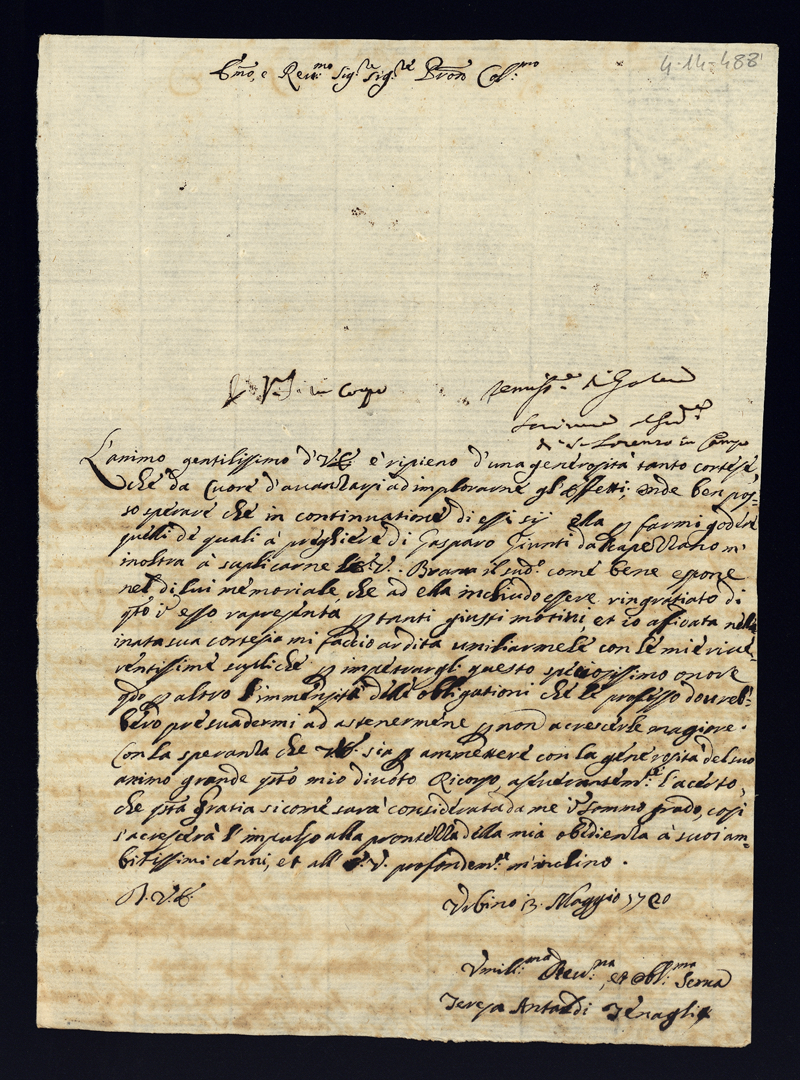 4-14-488
Emo, e Reu:mo Sig:re Sig:re Pron Col:mo
in Corpo
S. Lorenzo in Campo
L'animo gentilissimo d'V.E. è ripieno d'una generosità tanto cortese
che da Cuore d'auanzarsi ad implorarne gl'effetti; onde ben pos-
so sperare che in continuatione di essi sij ella p farmi godere
quelli de quali à preghiere di Gasparo Giunti da m'
inoltro à suplicarne l'E.V. Brama il sudo: come bene espone
nel di lui memoriale, che ad ella inchiudo essere ringratiato di
qto esso rapresenta p tanti giusti motiui, et io afidata nella
inata sua cortesia mi faccio ardita umiliarmele con le mie riue-
rentissime supliche p impetrargli questo speciosissimo onore
qdo p altro l'immensità delle obligationi che le professo doureb-
bero persuadermi ad astenermene p non acrescerle magiore.
Con la speranza che V.E. sia p ammettere con la generosità del suo
animo grande qsto mio diuoto Ricorso, l'acerto,
che qsta Gratia sicome sarà considerata da me sommo grado, cosi
s'accrescerà l'impulso alla prontezza della mia obidienza à suoi am-
bitissimi cenni, et all' E.V. profondem:te m'inclino.
D.V.E.
Vrbino 13. Maggio 1720
Vmil:ma Deu:ma, et Obl:ma Serua
Teresa Antaldi Tenaglia